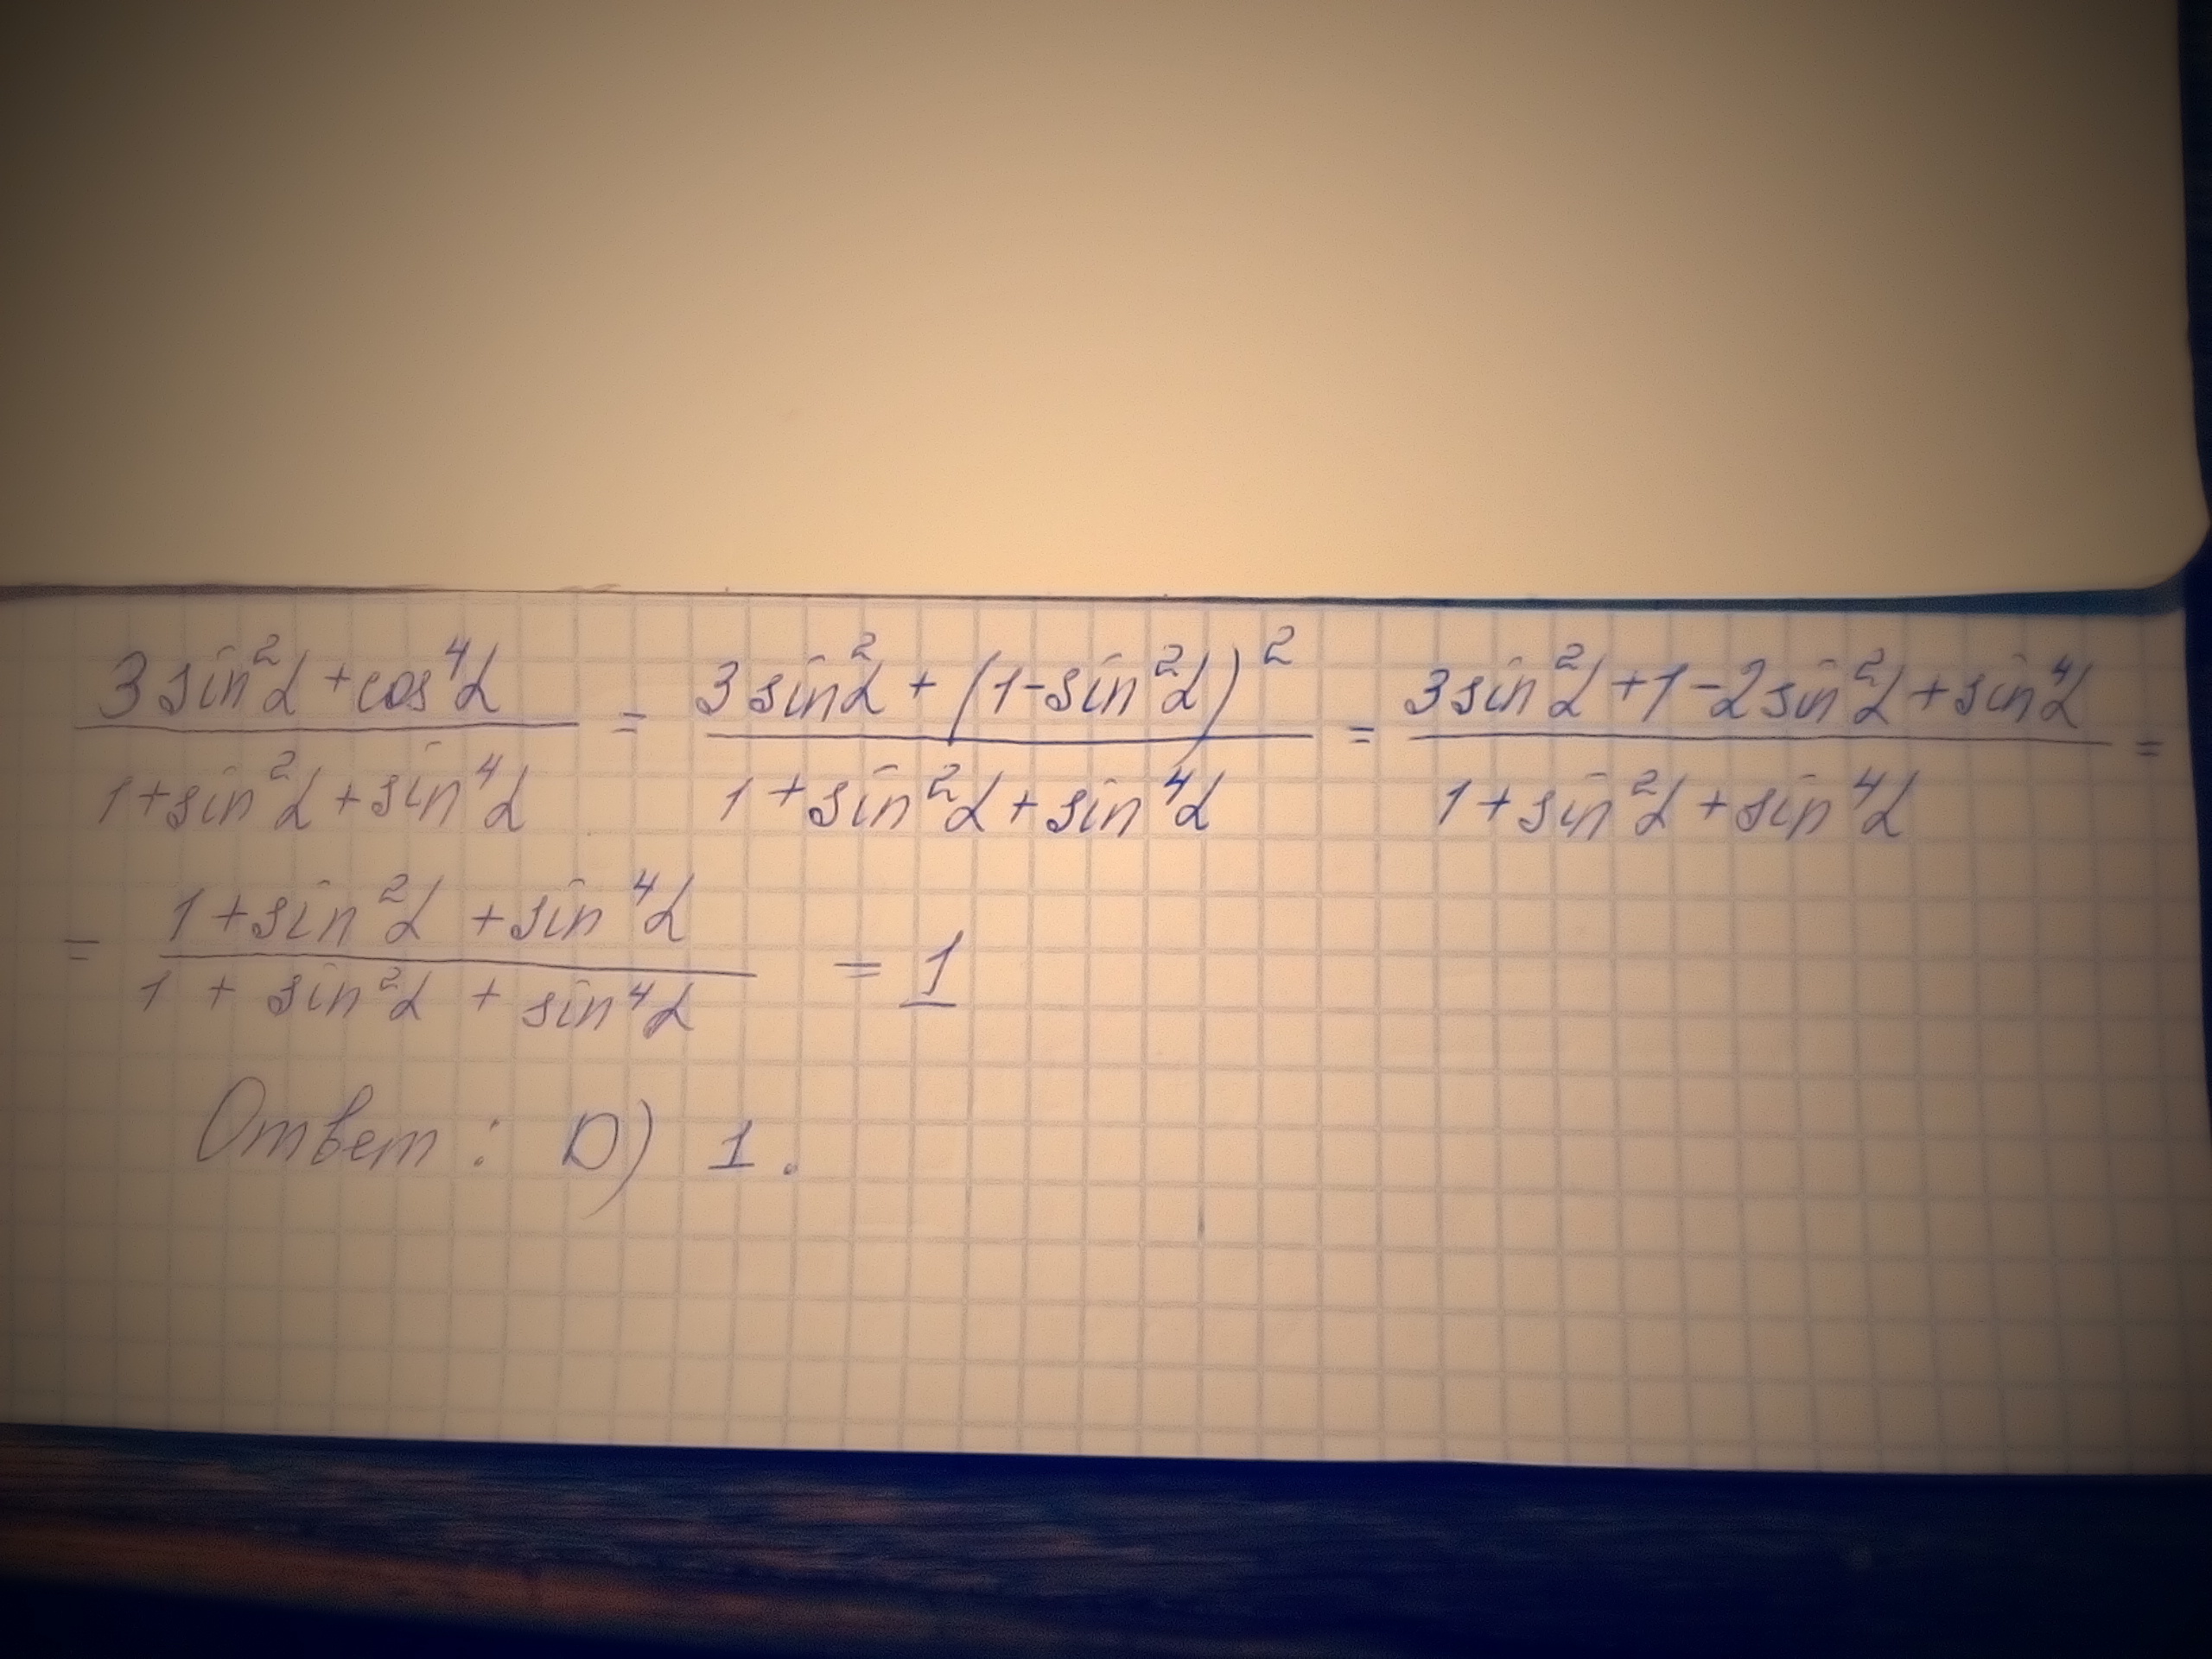 (3sin²α + cos⁴α)/(1 + sin²α + sin⁴α) = (3sin²α + (1 - sin²α)²)/(1 + sin²α + sin⁴α) = (3sin²α + 1 - 2sin²α + sin⁴α)/(1 + sin²α + sin⁴α) =
= (1 + sin²α + sin⁴α)/(1 + sin²α + sin⁴α) = 1
Ответ: D) 1.